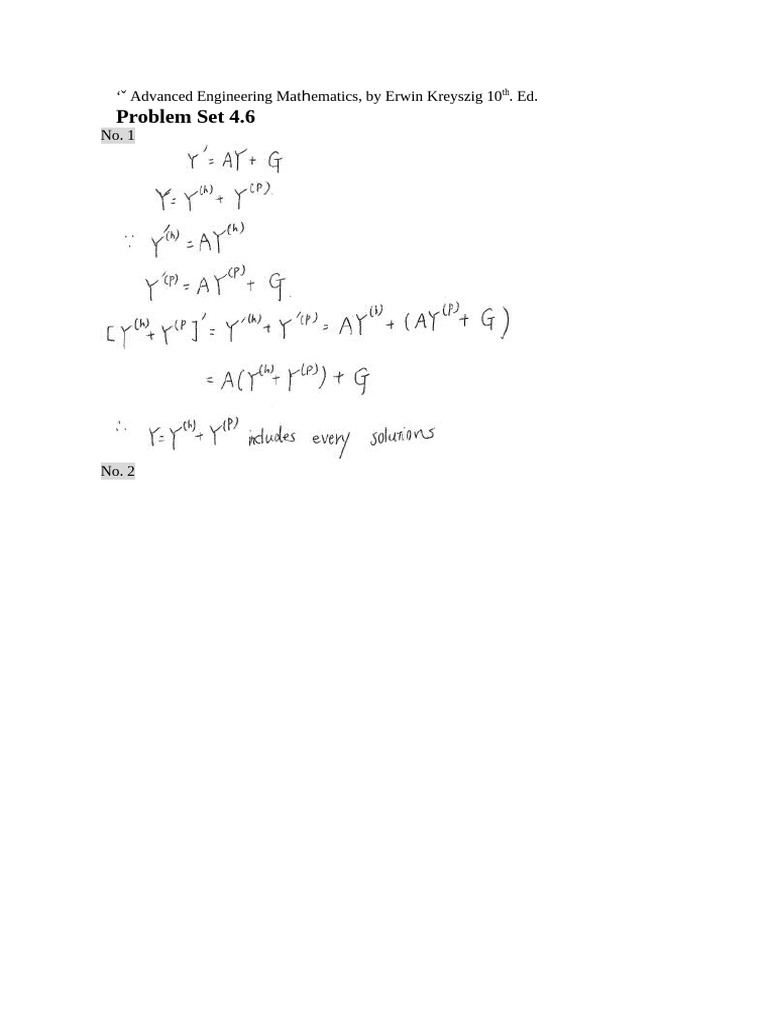 ‘˘ Advanced Engineering Mathematics, by Erwin Kreyszig 10th. Ed.
Problem Set 4.6
No. 1
Y' = AY + G
Y = Y(h) + Y(P).
∵ Y'(h) = AY(h)
Y'(P) = AY(P) + G.
[Y(h) + Y(P]' = Y'(h) + Y'(P) = AY(h) + (AY(P) + G)
= A(Y(h) + Y(P)) + G
∴ Y = Y(h) + Y(P) includes every solutions
No. 2